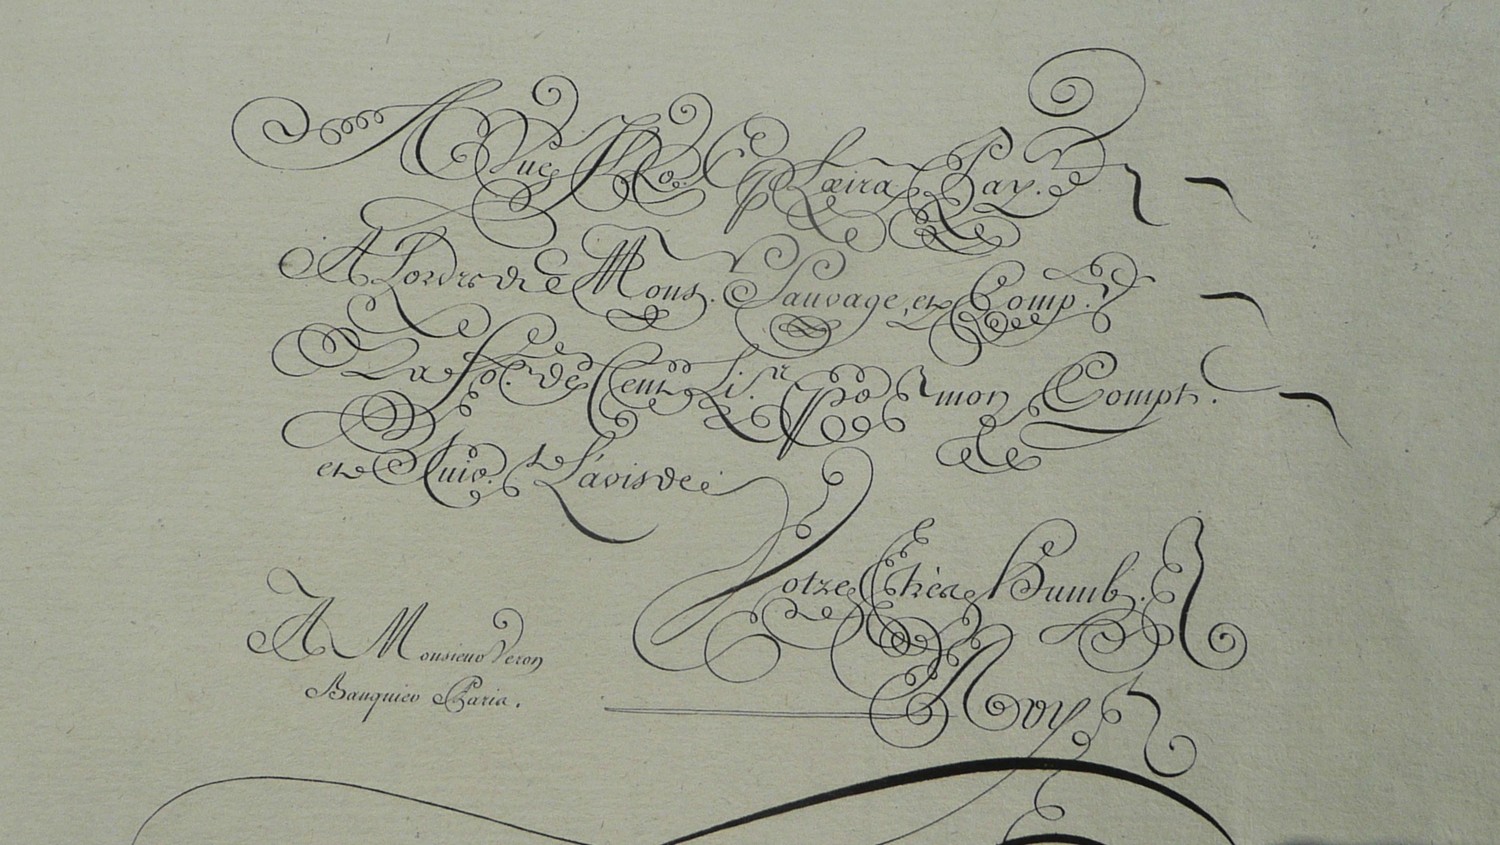 A Vue, Mo. Il plaira Pay. 
A Lordre de Mons. Sauvage, et Comp.
La So. de Cent Li. mon Compt.
et Suiv. L'avis de
Votre Très Humb.
Roy
A Monsieur Veron
Banquier Paris.